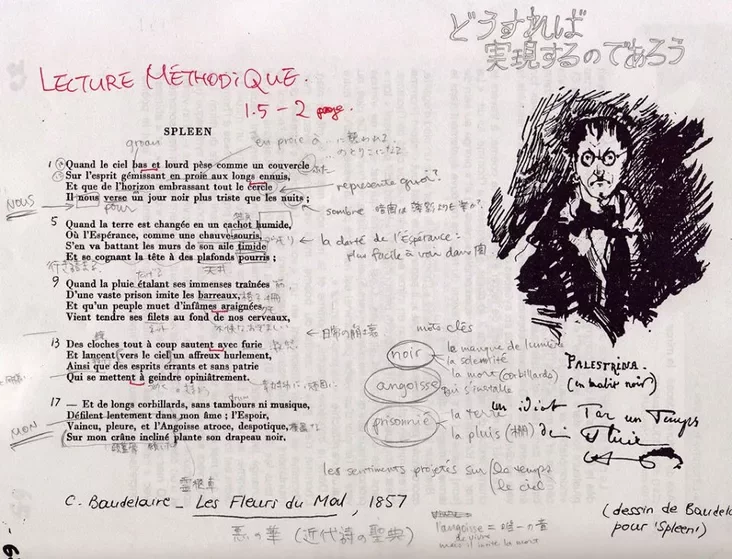 どうすれば
実現するのであろう
LECTURE MÉTHODIQUE.
1.5 - 2 page.
SPLEEN
groan
en proie à
1 Quand le ciel bas et lourd pèse comme un couvercle
Sur l'esprit gémissant en proie aux longs ennuis,
Et que de l'horizon embrassant tout le cercle
représente quoi?
Il nous verse un jour noir plus triste que les nuits ;
NOUS
pour
sombre
5 Quand la terre est changée en un cachot humide,
Où l'Espérance, comme une chauve-souris,
la clarté de l'Espérance :
S'en va battant les murs de son aile timide
plus facile à voir dans
Et se cognant la tête à des plafonds pourris ;
天井
9 Quand la pluie étalant ses immenses traînées
D'une vaste prison imite les barreaux,
Et qu'un peuple muet d'infâmes araignées
Vient tendre ses filets au fond de nos cerveaux,
日常の崩壊
mots clés
13 Des cloches tout à coup sautent avec furie
Et lancent vers le ciel un affreux hurlement,
Ainsi que des esprits errants et sans patrie
Qui se mettent à geindre opiniâtrement.
noir
la manque de lumière
la solennité
la mort (corbillards)
angoisse
qui s'installe
17 — Et de longs corbillards, sans tambours ni musique,
Défilent lentement dans mon âme ; l'Espoir,
Vaincu, pleure, et l'Angoisse atroce, despotique,
Sur mon crâne incliné plante son drapeau noir.
MON
prisonnié
la terre
la pluis (柵)
PALESTRINA.
(en habit noir)
un idiot
Par un Temps
de
Pluie
霊柩車
les sentiments projetés sur (le temps
(le ciel
C. Baudelaire _ Les Fleurs du Mal, 1857
悪の華 (近代詩の聖典)
l'angoisse = 唯一の
de vivre
mais il invite la mort
(dessin de Baudela
pour 'Spleen')